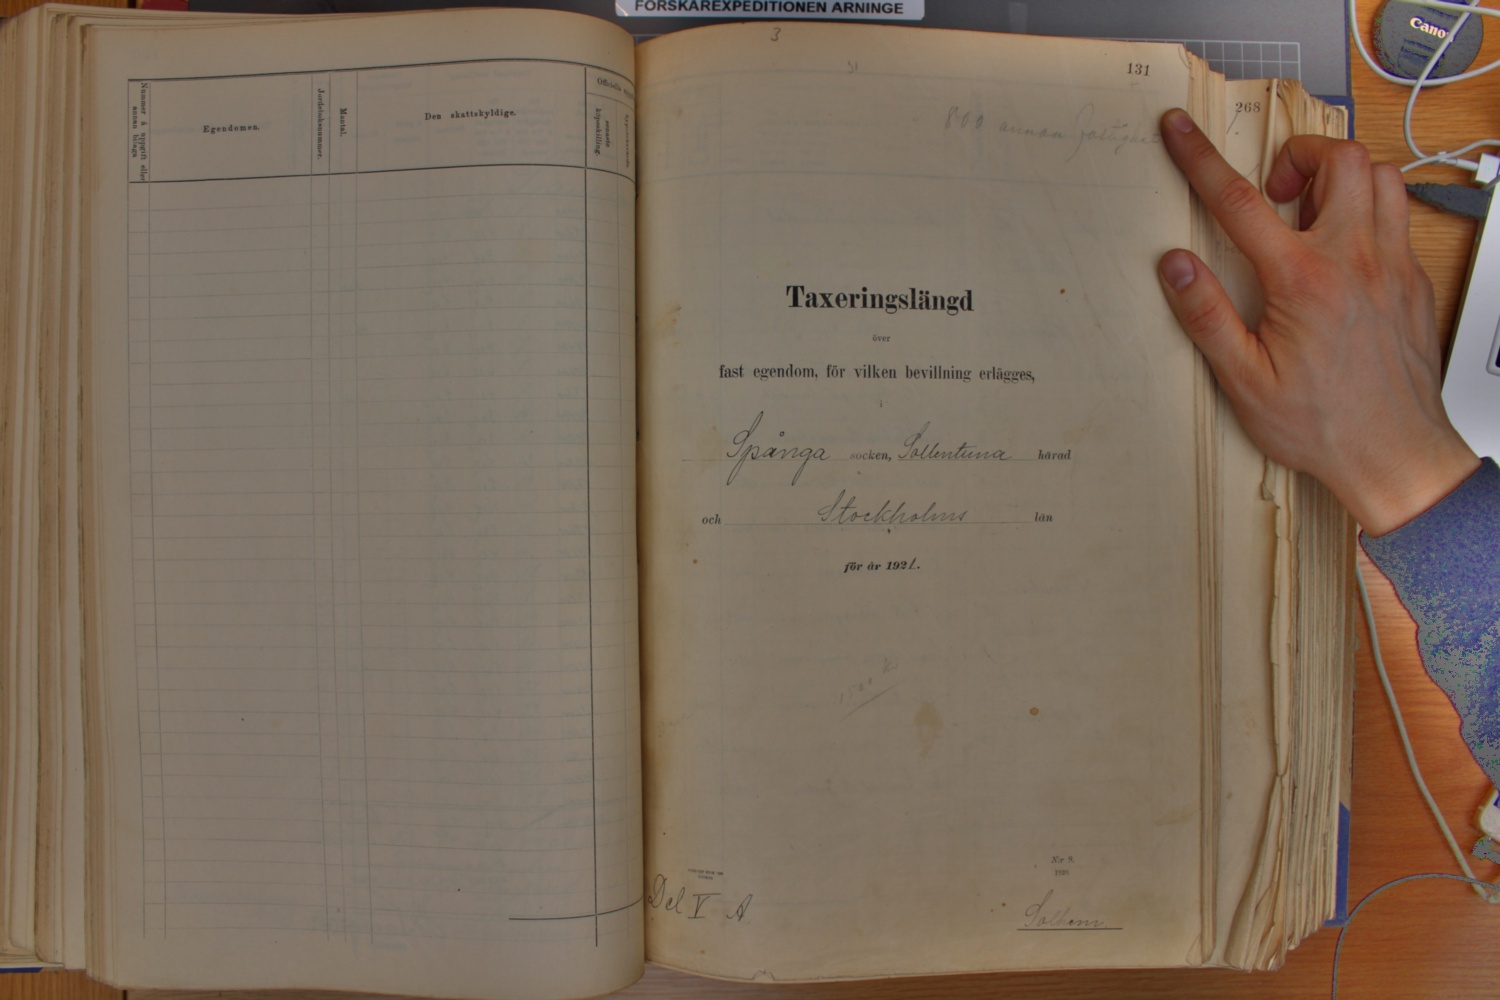 FORSKAREXPEDITIONEN ARNINGE
Canon
Nummer å uppgift eller annan bilaga
Egendomen.
Jordeboksnummer.
Mantal.
Den skattskyldige.
Officiella
senaste köpeskilling.
3
131
268
800 annan fastighet
Taxeringslängd
över
fast egendom, för vilken bevillning erlägges,
i
Spånga socken, Sollentuna härad
och Stockholms län
för år 1921.
1500 k
N:r 9.
1920.
Del V A.
Solhem